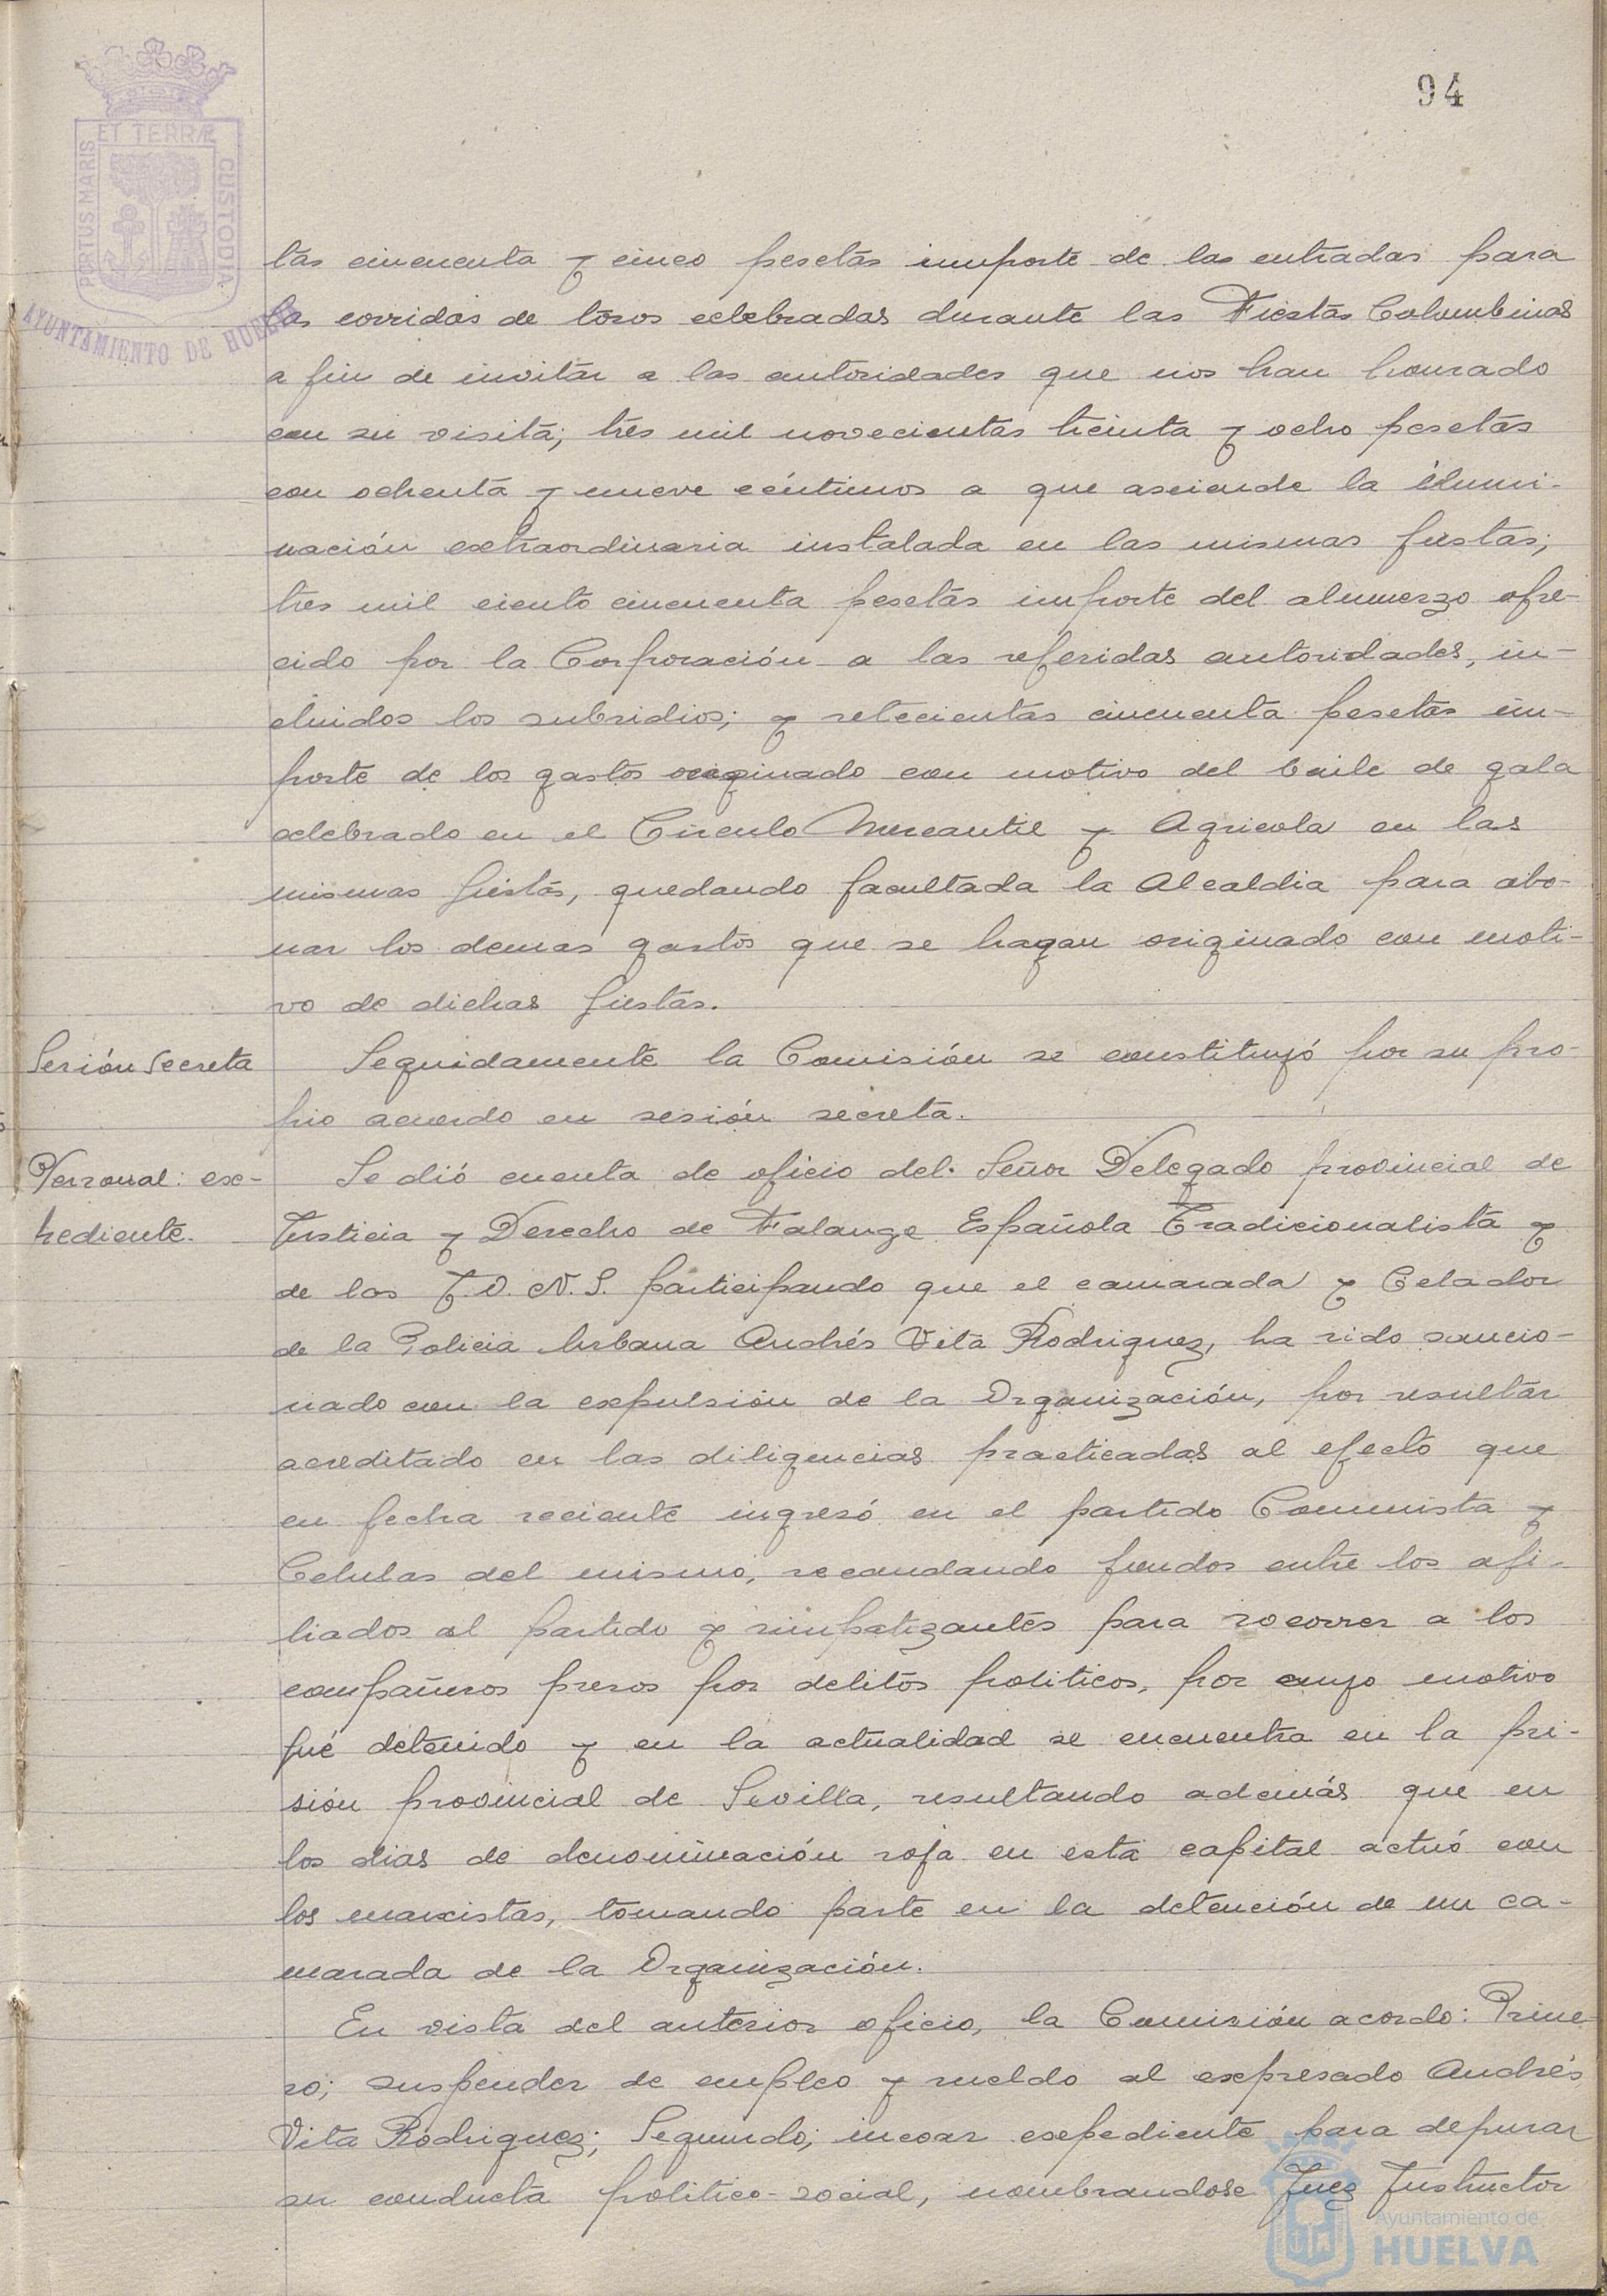 94
PORTUS MARIS ET TERRÆ CUSTODIA
AYUNTAMIENTO DE HUELVA
tas cincuenta y cinco pesetas importe de las entradas para
las corridas de toros celebradas durante las Fiestas Colombinas
a fin de invitar a las autoridades que nos han honrado
con su visita; tres mil novecientas treinta y ocho pesetas
con ochenta y nueve céntimos a que asciende la ilumi-
nación extraordinaria instalada en las mismas fiestas;
tres mil ciento cincuenta pesetas importe del almuerzo ofre-
cido por la Corporación a las referidas autoridades, in-
cluidos los subsidios; y setecientas cincuenta pesetas im-
porte de los gastos originado con motivo del baile de gala
celebrado en el Circulo Mercantil y Agricola en las
mismas fiestas, quedando facultada la Alcaldia para abo-
nar los demas gastos que se hagan originado con moti-
vo de dichas fiestas.
Sesión Secreta
Seguidamente la Comisión se constituyó por su pro-
pio acuerdo en sesión secreta.
Personal: ex-
pediente.
Se dió cuenta de oficio del Señor Delegado provincial de
Justicia y Derecho de Falange Española Tradicionalista y
de las J.O.N.S. participando que el camarada y Celador
de la Policia Urbana Andrés Vita Rodriguez, ha sido sancio-
nado con la expulsión de la Organización, por resultar
acreditado en las diligencias practicadas al efecto que
en fecha reciente ingresó en el partido Comunista y
Celulas del mismo, recaudando fondos entre los afi-
liados al partido y simpatizantes para socorrer a los
compañeros presos por delitos politicos, por cuyo motivo
fué detenido y en la actualidad se encuentra en la pri-
sión provincial de Sevilla, resultando además que en
los dias de denominación roja en esta capital actuó con
los marxistas, tomando parte en la detención de un ca-
marada de la Organización.
En vista del anterior oficio, la Comisión acordo: Prime-
ro; suspender de empleo y sueldo al expresado Andrés
Vita Rodriguez; Segundo; incoar expediente para depurar
su conducta politico-social, nombrandose Juez Instructor
Ayuntamiento de
HUELVA